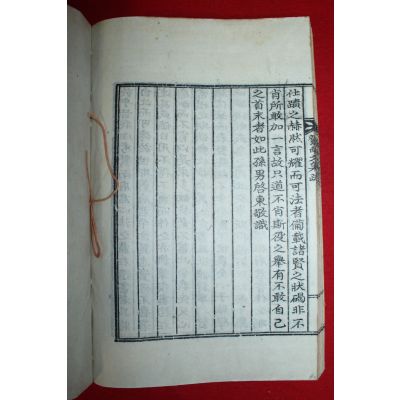 仕蹟之赫然可耀而可法者備載諸賢之狀碣非不
肖所敢加一言故只道不肖斯役之擧有不敢自已
之首末者如此孫男啓東敬識